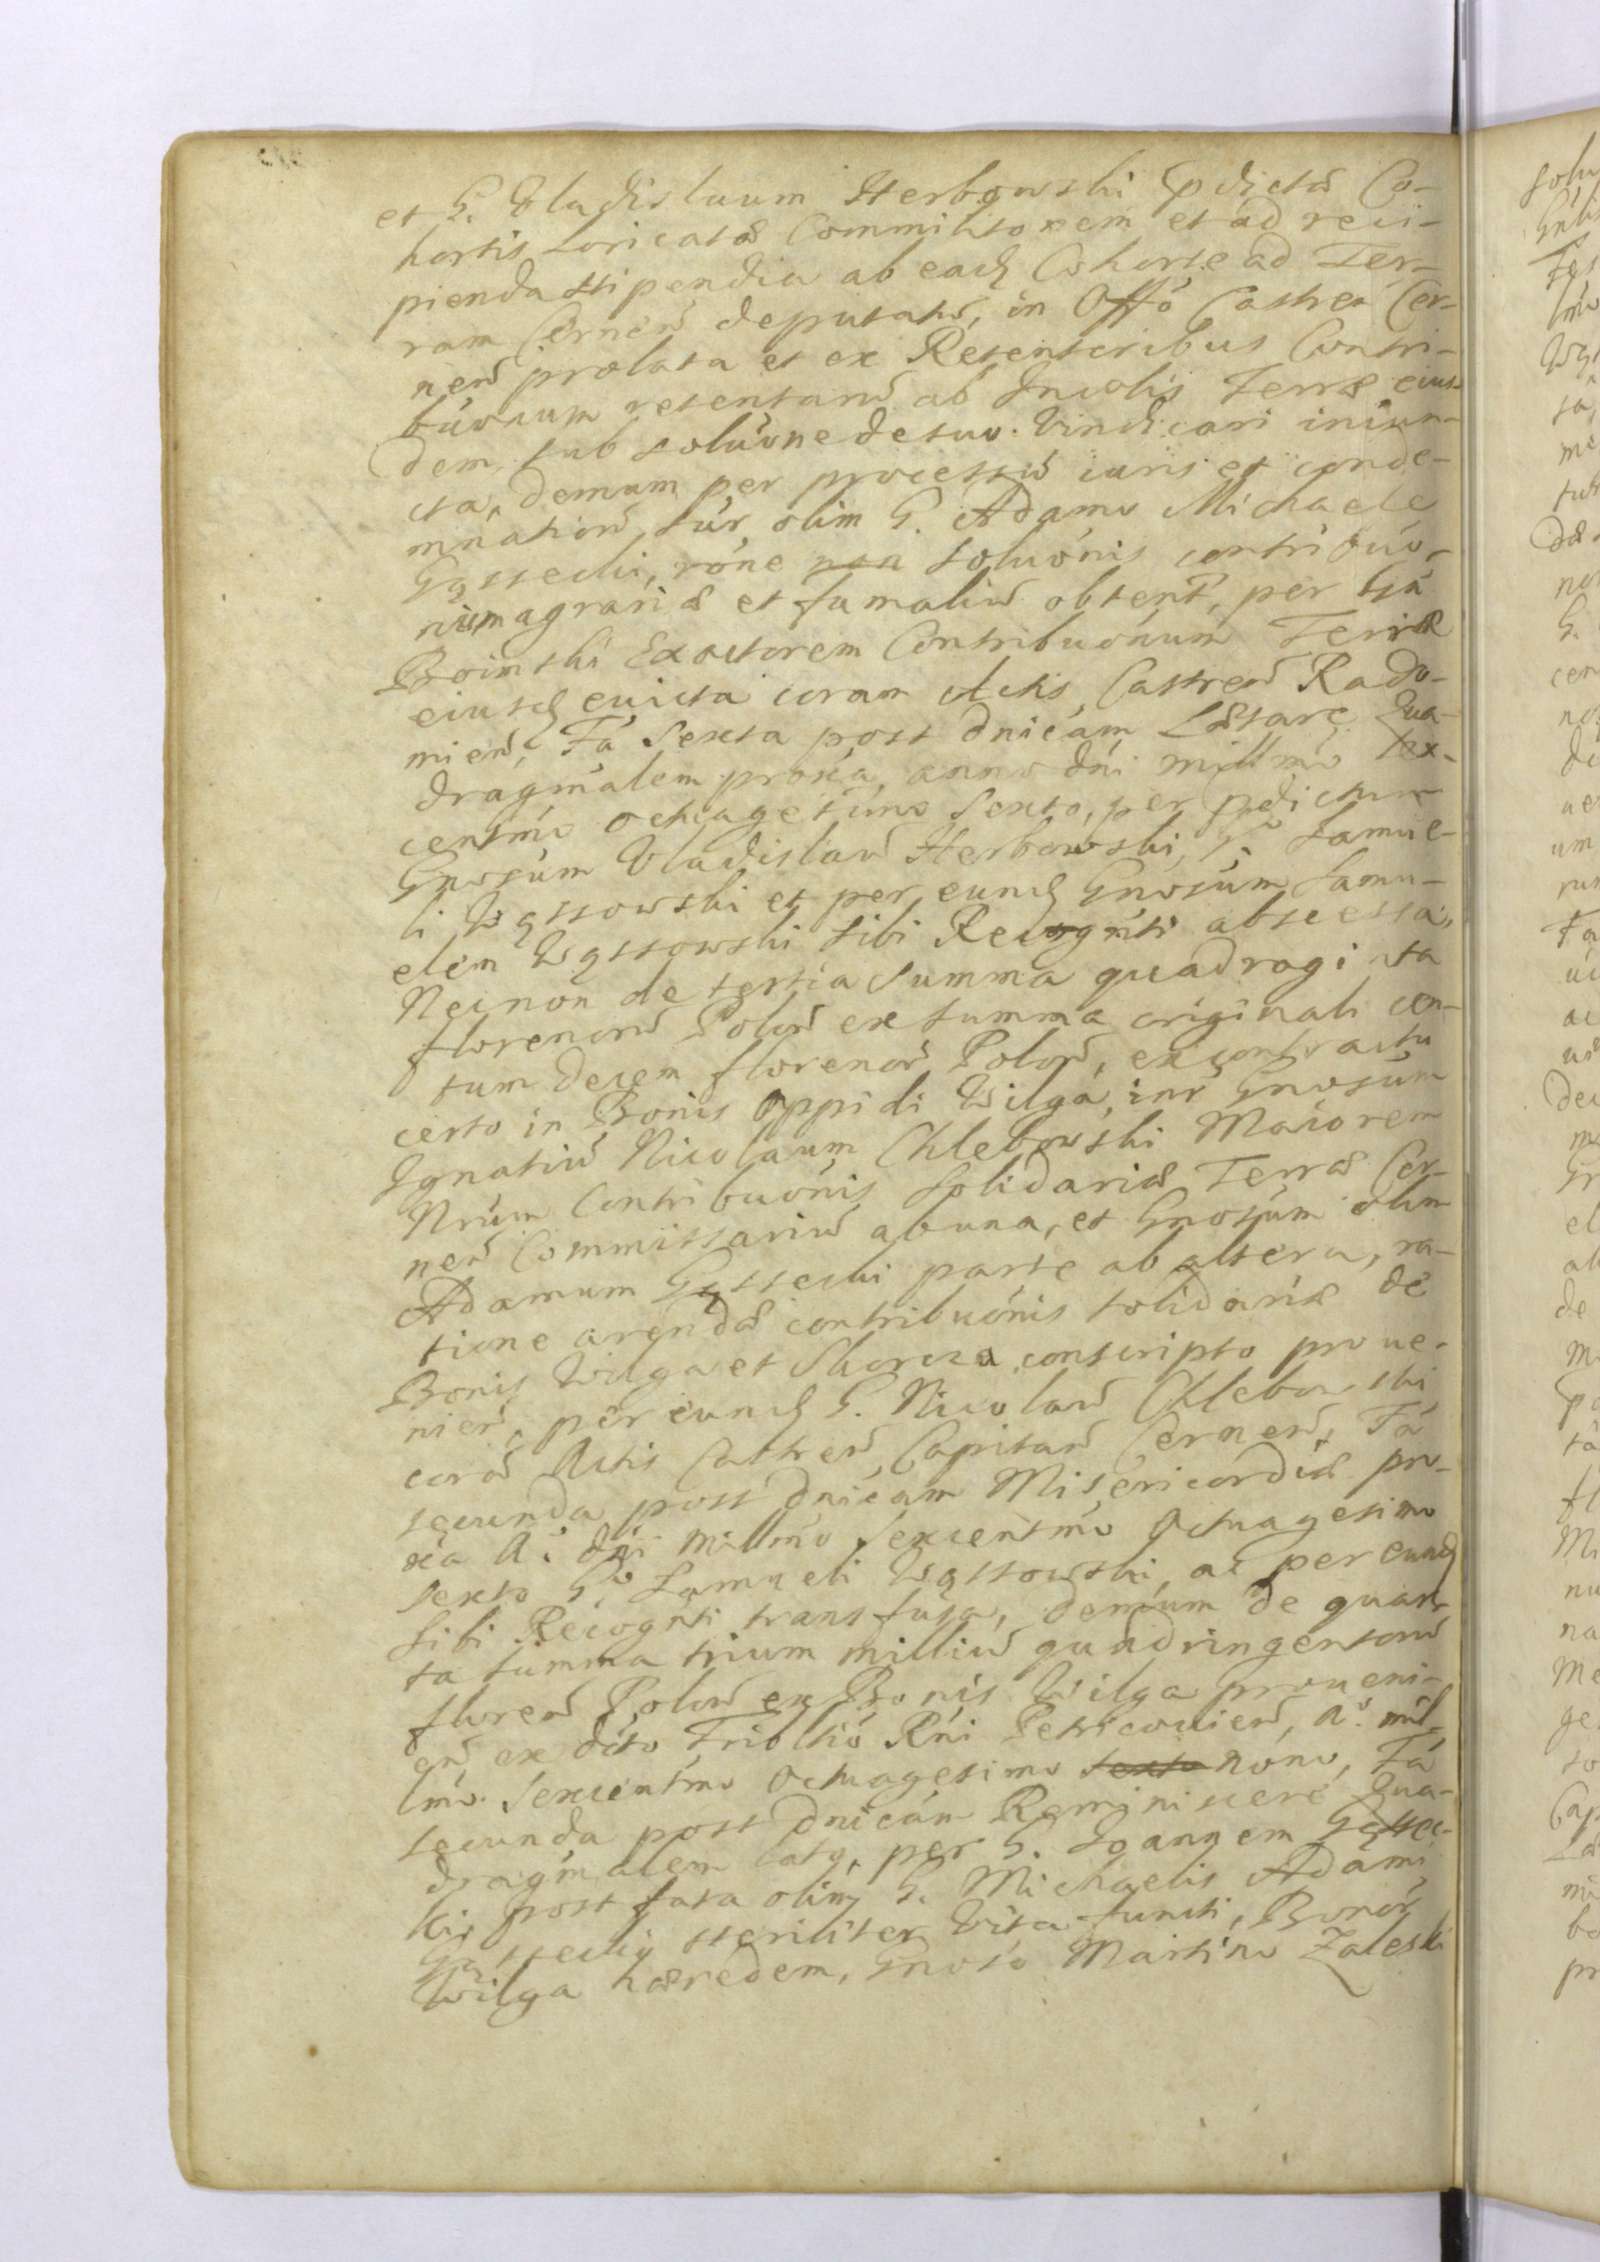 et G. Vladisluum Herbowski pdictæ Co-
hortis Loricatæ Commilitonem et ad reci-
pienda stipendia ab eadq Cohorte ad Ter-
ram Cernen deputatu, in Offo Castren Cer-
nen prolata et ex Retentoribus Contri-
buonum retentaru ab Incolis Terræ eius-
dem, sub soluone de suo. Vindicari iniun-
cta, demum per processu iuris et conde-
mnation sup olim G. Adamo Michaele
Gąssecki, róne non Soluónis contribuó-
num agrariæ et fumaliu obtent, per Gn
Boimski Exactorem Contribuónum Terræ
eiusdq euicta coram Actis Castren Rado-
mien, Fa Sexta post dnicam Lætare Qua-
dragmalem proxa, anno dni millmo sex-
centmo octuagesimo Sexto, per pdictum
Gnosum Vladislau Herbowski, Gso Samue-
li Wąssowski et per eundq Gnosum Samu-
elem Wąssowski sibi Recognti abscessa,
Necnon de tertia Summa quadraginta
florenoru Polon ex summa originali cen-
tum decem florenor Polon, ex contractu
certo in Bonis Oppidi Wilga, intr Gnosum
Ignatiu Nicolaum Chlebowski Maiorem
Nrum Contribuónis Solidariæ Terræ Cer-
nen Commissariu ab una, et Gnosum olim
Adamum Gąssecki parte ab altera, ra-
tione arendæ contribuónis solidariæ de
Bonis Wilga et Skurcza conscripto proue-
nien, per eundq G. Nicolau Chlebowski
cora Actis Castren Capitan Cernen, Fa
secunda post dnicam Misericordiæ pro-
xa A. dni millmo Sexcentmo Octuagesimo
sexto Gso Samueli Wąssowski, ac per eundq
sibi Recognti transfusa, demum de quar-
ta summa trium milliu quadringentoru
floren Polon ex Bonis Wilga proueni-
en, ex dcto Tribltiú Rni Petricouien, A° mil-
lmo Sexcentmo Octuagesimo sexto nono, Fa
secunda post dnicam Reminiscere Qua-
dragmalem lato, per G. Joannem Gąssec-
ki, post fata olim G. Michaelis Adami
Gąssecki steriliter Vita functi, Bonor
Wilga hæredem, Gnoso Martino Zaleski